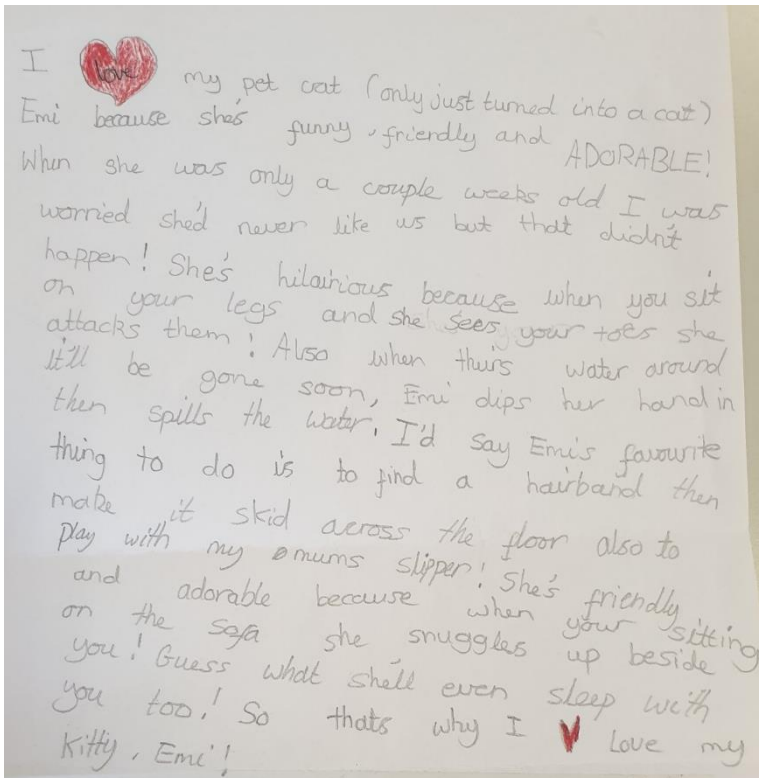 I love my pet cat (only just turned into a cat)
Emi because she's funny, friendly and ADORABLE!
When she was only a couple weeks old I was
worried she'd never like us but that didn't
happen! She's hilairious because when you sit
on your legs and she sees your toes she
attacks them! Also when thirs water around
it'll be gone soon, Emi dips her hand in
then spills the water. I'd say Emi's favourite
thing to do is to find a hairband then
make it skid across the floor also to
play with my mums slipper! She's friendly
and adorable because when your sitting
on the sofa she snuggles up beside
you! Guess what she'll even sleep with
you too! So thats why I love my
Kitty, Emi!